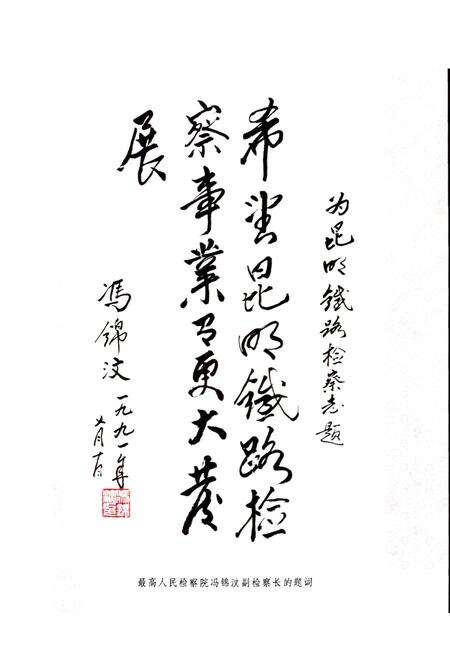 为昆明铁路检察志题
希望昆明鐵路检
察事業有更大发
展
冯锦汶 一九九一年
最高人民检察院冯锦汶副检察长的题词